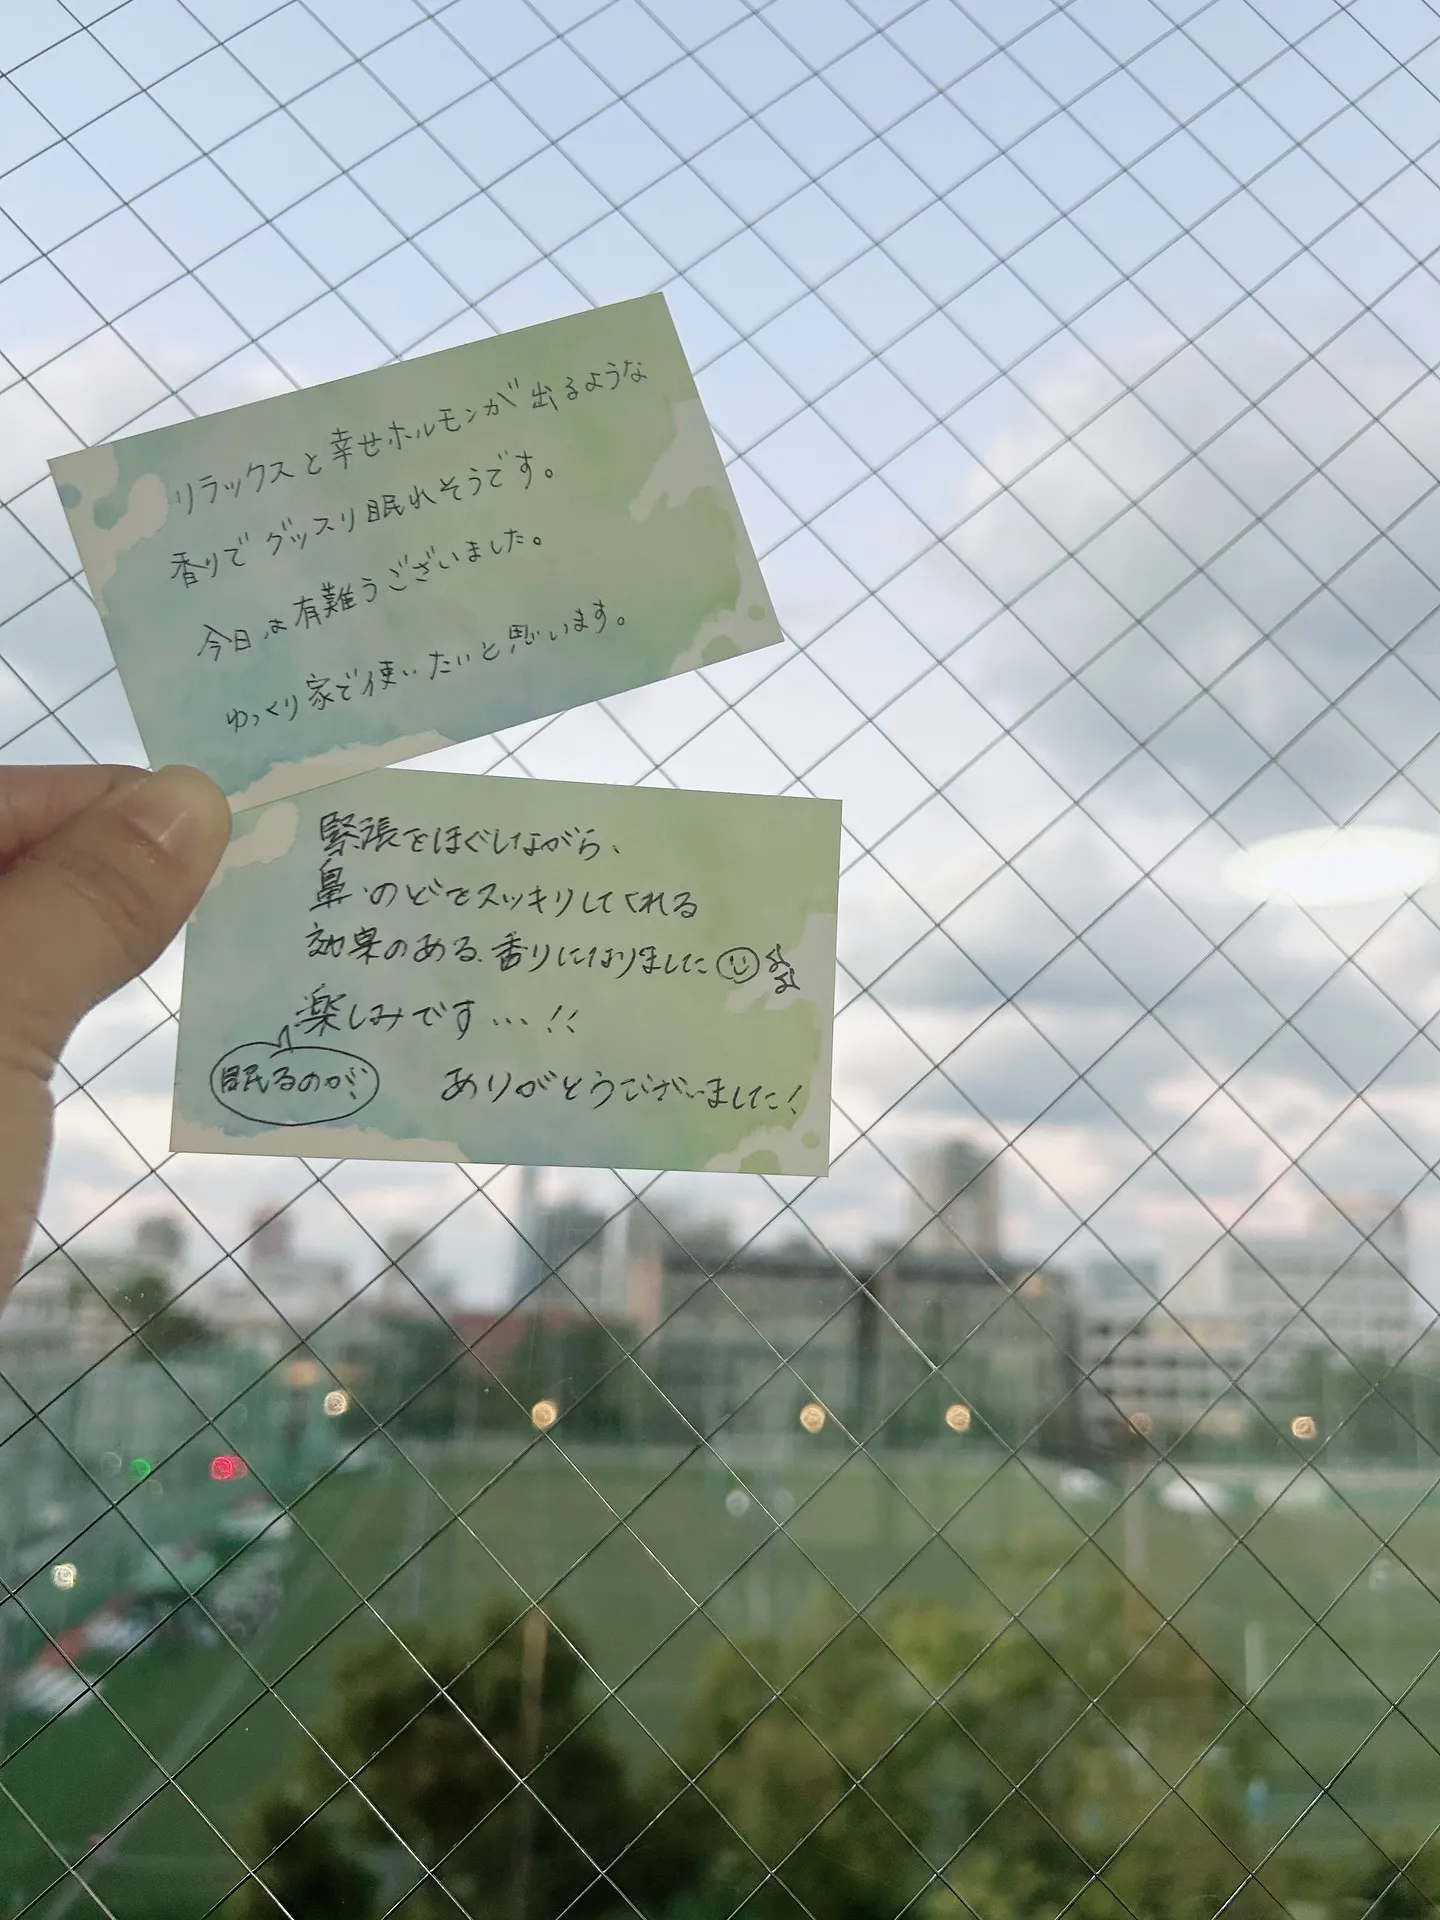 リラックスと幸せホルモンが出るような
香りでグッスリ眠れそうです。
今日は有難うございました。
ゆっくり家で使いたいと思います。
緊張をほぐしながら、
鼻・のどをスッキリしてくれる
効果のある、香りになりました
楽しみです…!!
眠るのが、
ありがとうございました!